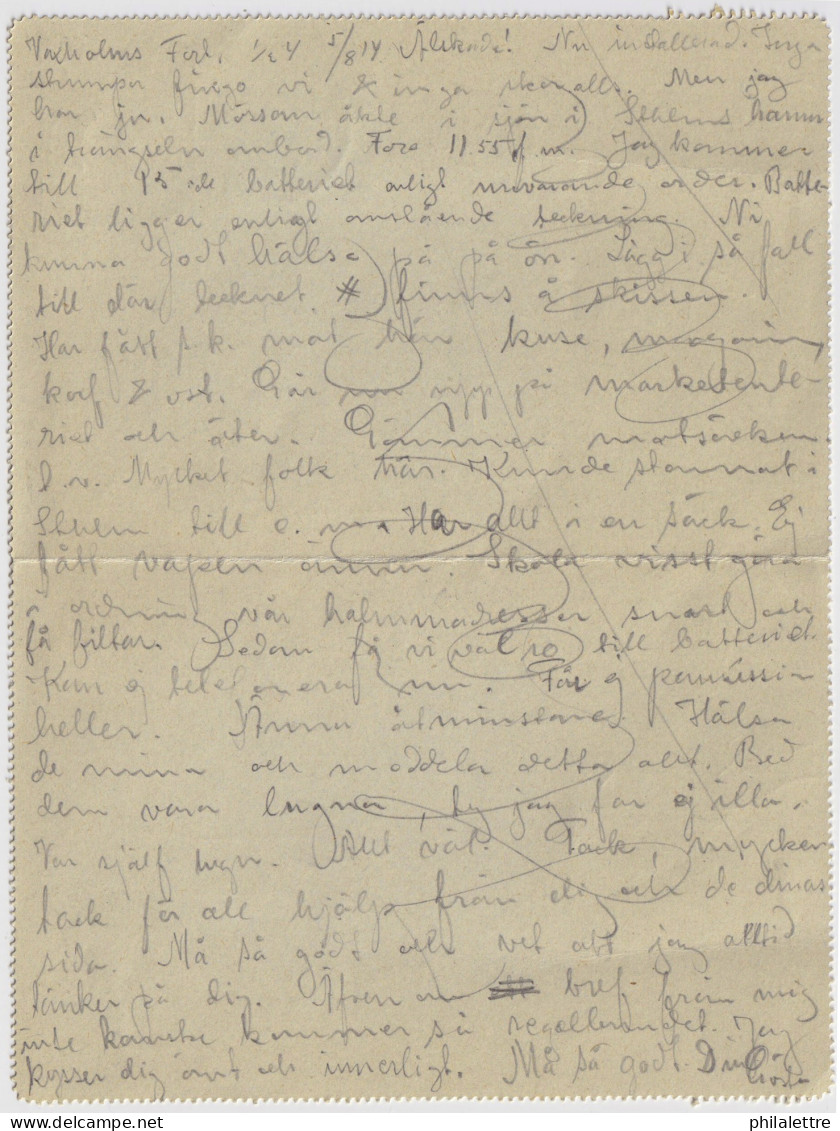 Vaxholms Fort, 5/8 14 Älskade! Nu installerad. Inga
strumpor fingo vi & inga skor alls. Men jag
har ju. Mössan åkte i sjön i Sthlms hamn
i trängseln ombord. Foro 11.55 f.m. Jag kommer
till 15:de batteriet enligt nuvarande order. Batte-
riet ligger enligt omstående teckning. Ni
kunna godt hälsa på på ön. Lägg i så fall
till där tecknet # finns å skissen.
Har fått s.k. mat här kuse, margarin,
korf & ost. Går nu upp på marketente-
riet och äter. Gömmer matsäcken.
t.v. Mycket folk här. Kunde stannat i
Sthlm till e.m. Har allt i en säck. Ej
fått vapen ännu. Skola visst göra
i ordning vår halmmadrasser snart och
få filtar. Sedan få vi väl ro till batteriet.
Kan ej telefonera nu. Får ej permission
heller. Ännu åtminstone. Hälsa
de mina och meddela detta allt. Bed
dem vara lugna, ty jag far ej illa.
Var själf lugn. Allt väl. Tack, mycken
tack för all hjälp från dig och de dinas
sida. Må så godt och vet att jag alltid
tänker på dig. Äfven om bref från mig
inte kanske kommer så regelbundet. Jag
kysser dig ömt och innerligt. Må så godt. Din Gösta
philalettre